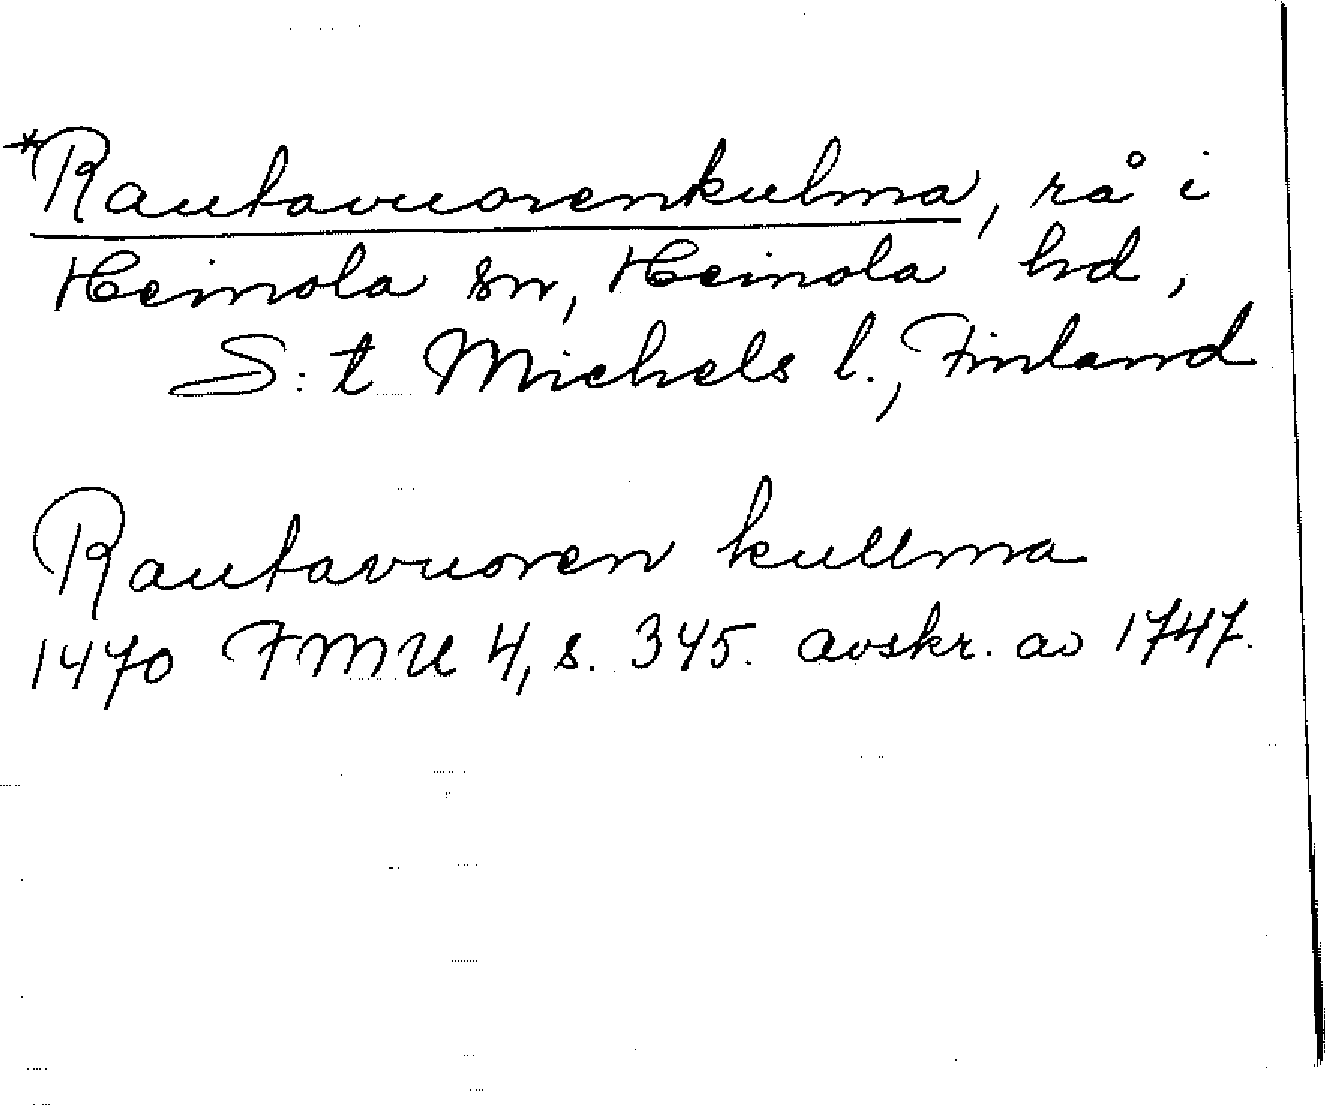 *Rautavuorenkulma, rå i
Heinola sn, Heinola hd,
S:t Michels l., Finland
Rautavuoren kullma
1470 FMU 4, s. 345. avskr. av 1747.